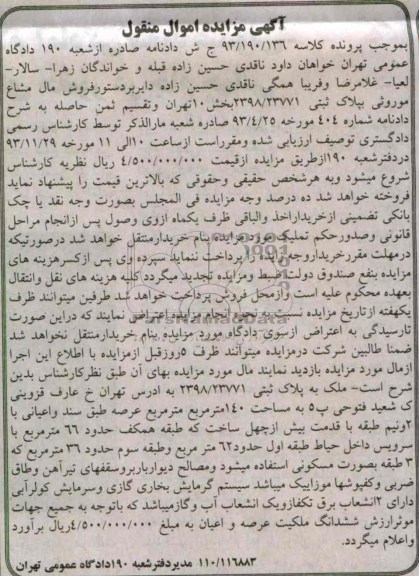 آگهی مزایده اموال منقول
بموجب پرونده کلاسه ۹۳/۱۹۰/۱۳۶ ج ش دادنامه صادره ازشعبه ۱۹۰ دادگاه
عمومی تهران خواهان داود ناقدی حسین زاده قبله و خواندگان زهرا- سالار-
لعیا- غلامرضا وفریبا همگی ناقدی حسین زاده دایربردستورفروش مال مشاع
موروثی بپلاک ثبتی ۲۳۹۸/۲۳۷۷۱بخش۱۰تهران وتقسیم ثمن حاصله به شرح
دادنامه شماره ۴۰۴ مورخه ۹۳/۴/۲۵ صادره شعبه مارالذکر توسط کارشناس رسمی
دادگستری توصیف ارزیابی شده ومقرراست ازساعت ۱۰الی ۱۱ مورخه ۹۳/۱۱/۲۹
دردفترشعبه ۱۹۰ازطریق مزایده ازقیمت ۴/۵۰۰/۰۰۰/۰۰۰ ریال نظریه کارشناس
شروع میشود وبه هرشخص حقیقی وحقوقی که بالاترین قیمت را پیشنهاد نماید
فروخته خواهد شد ده درصد وجه مزایده فی المجلس بصورت وجه نقد یا چک
بانکی تضمینی ازخریداراخذ والباقی ظرف یکماه ازوی وصول پس ازانجام مراحل
قانونی وصدورحکم تملیک مورد مزایده بنام خریدارمنتقل خواهد شد درصورتیکه
درمهلت مقررخریداروجه مزایده را پرداخت ننماید سپرده وی پس ازکسرهزینه های
مزایده بنفع صندوق دولت ضبط ومزایده تجدید میگردد کلیه هزینه های نقل وانتقال
بعهده محکوم علیه است وازمحل فروش پرداخت خواهد شد طرفین میتوانند ظرف
یکهفته ازتاریخ مزایده نسبت به نحوه انجام مزایده اعتراض نمایند که دراین صورت
تارسیدگی به اعتراض ازسوی دادگاه مورد مزایده بنام خریدارمنتقل نخواهد شد
ضمنا طالبین شرکت درمزایده میتوانند ظرف ۵روزقبل ازمزایده با اطلاع این اجرا
ازمال مورد مزایده بازدید نمایند مال مورد مزایده بهای آن طبق نظرکارشناس بدین
شرح است- ملک به پلاک ثبتی ۲۳۹۸/۲۳۷۷۱ به ادرس تهران خ عارف قزوینی
ک شعید فتوحی پ۵ به مساحت ۱۴۰مترمربع مترمربع عرصه طبق سند واعیانی با
۲ونیم طبقه با قدمت بیش ازچهل ساخت که طبقه همکف حدود ۶۶ مترمربع با
سرویس داخل حیاط طبقه اول حدود۶۲ متر مربع وطبقه سوم حدود ۳۶ مترمربع که
۳طبقه بصورت مسکونی استفاده میشود ومصالح دیوارباربروسقفهای تیرآهن وطاق
ضربی وکفپوشها موزاییک میباشد سیستم گرمایش بخاری گازی وسرمایش کولرآبی
دارای ۲انشعاب برق تکفازویک انشعاب آب وگازمیباشد که باتوجه به جمیع جهات
موثرارزش ششدانگ ملکیت عرصه و اعیان به مبلغ ۴/۵۰۰/۰۰۰/۰۰۰ریال برآورد
واعلام میگردد.
۱۱۰/۱۱۶۸۸۳ مدیردفترشعبه ۱۹۰دادگاه عمومی تهران